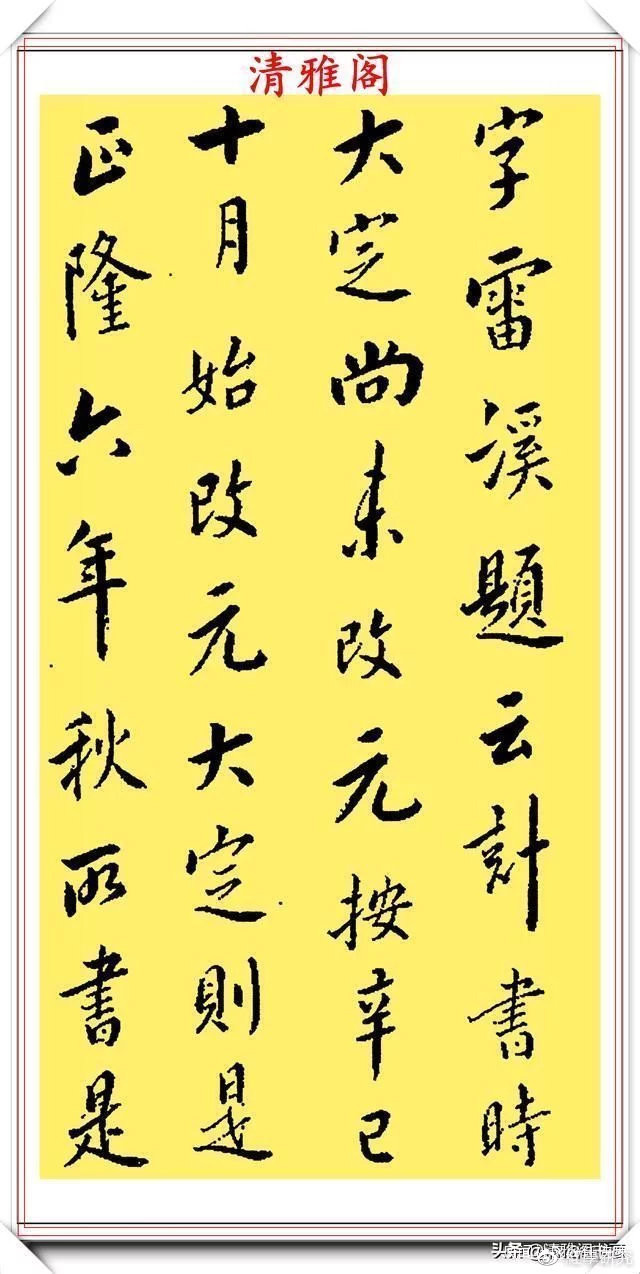 清雅阁
字雷溪題云計書時
大定尚未改元按辛巳
十月始改元大定則是
正隆六年秋所書是
头条@清雅阁书画